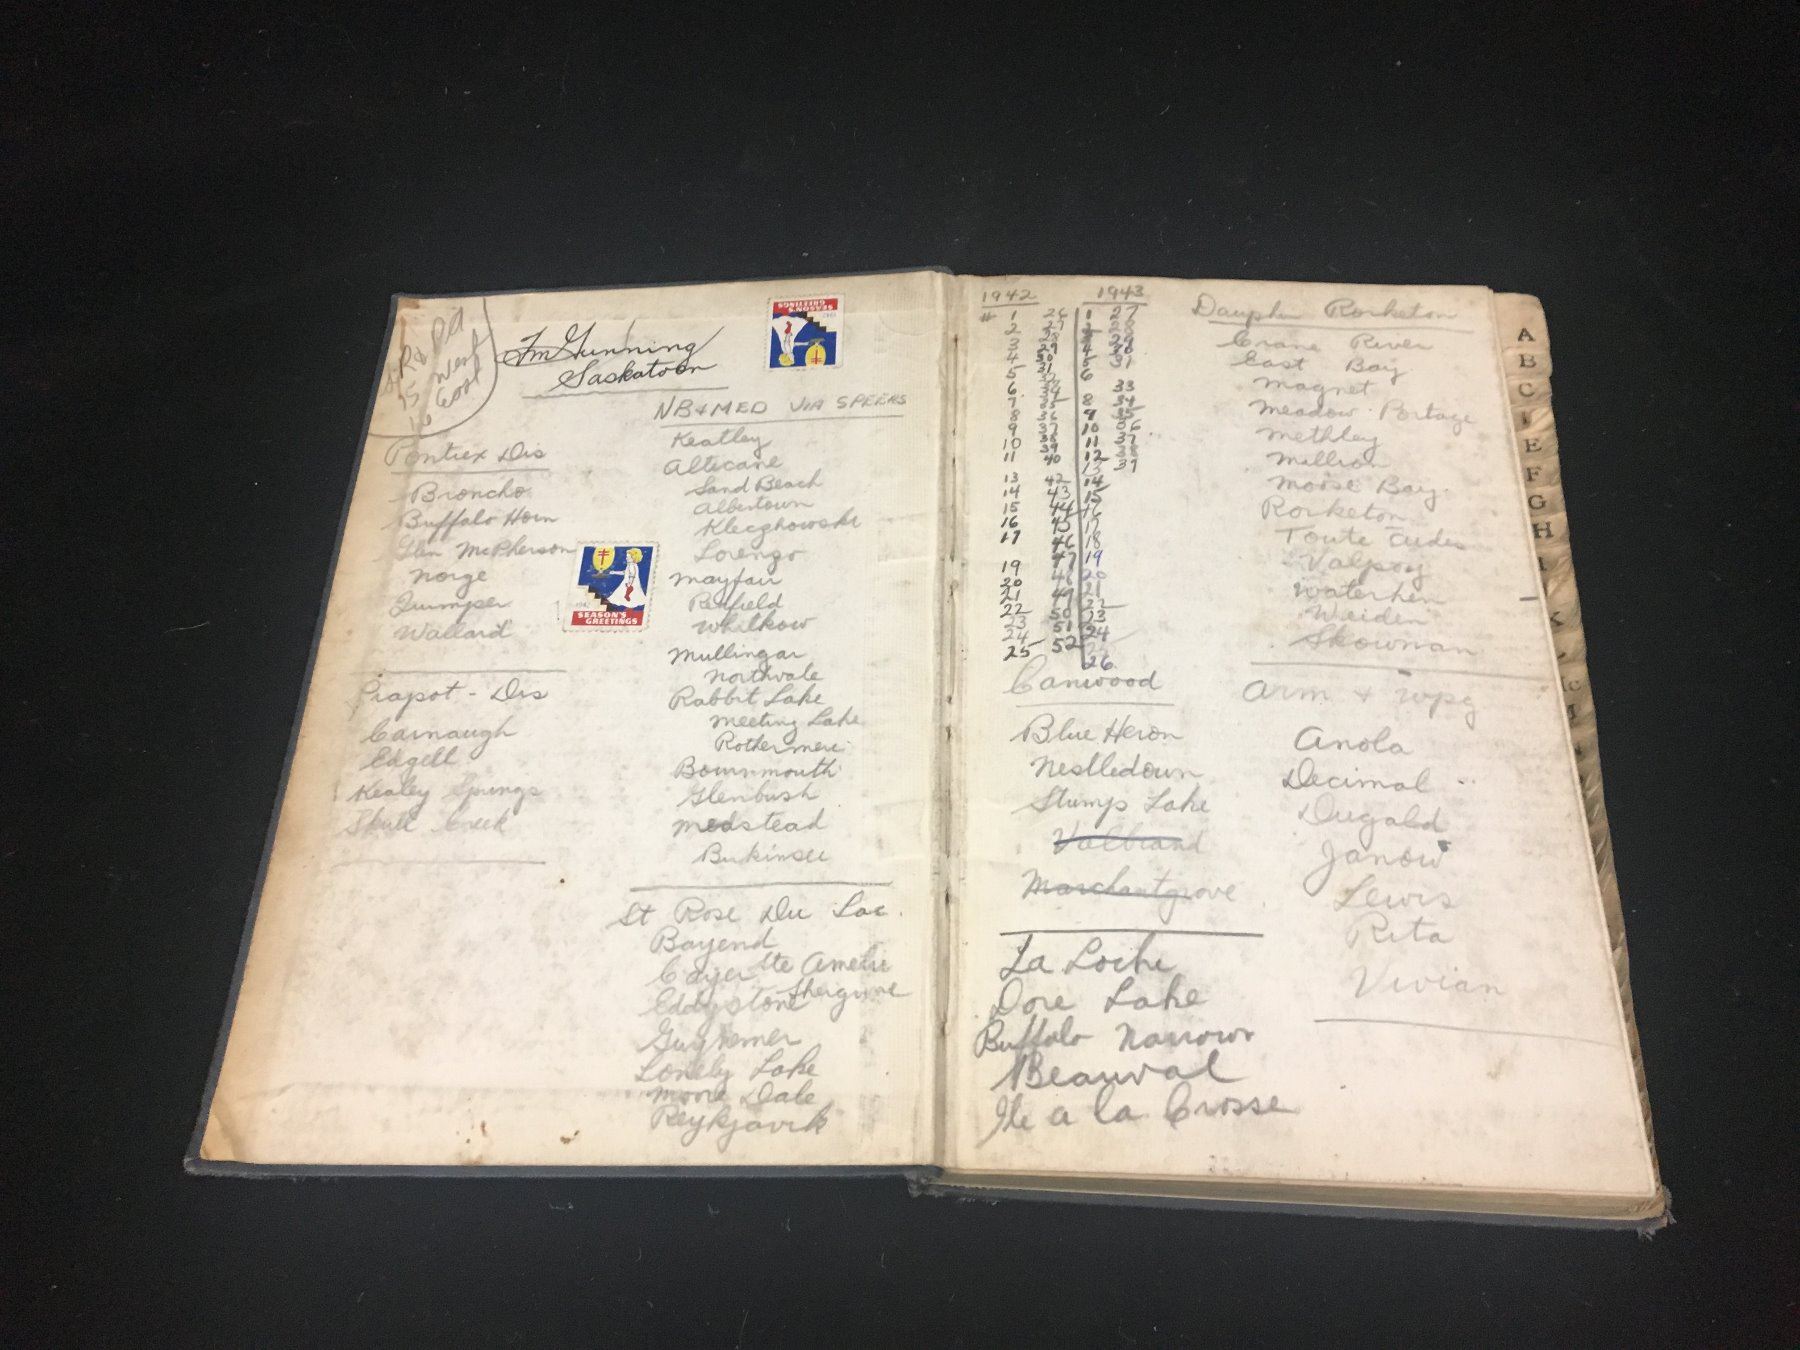 R & PA
15 West
16 East
Jm Gunning
Saskatoon
SEASON'S
GREETINGS
NB & MED VIA SPEERS
Pontiex Dis
Broncho
Buffalo Horn
Glen McPherson
Norge
Quimper
Wallard
1942
SEASON'S
GREETINGS
Piapot - Dis
Carnaugh
Edgell
Kealey Springs
Skull Creek
Keatley
Alticane
Sand Beach
Albertown
Kleczkowski
Lorenzo
Mayfair
Redfield
Whitkow
Mullingar
Northvale
Rabbit Lake
Meeting Lake
Rothermere
Bournmouth
Glenbush
Medstead
Birkinsee
St Rose Du Lac.
Bayend
Cayer Ste Amelie
Eddystone Shergrove
Guynemer
Lonely Lake
Moore Dale
Reykjavik
1942
1 26
2 27
3 28
4 29
5 30
6 31
7 35
8 36
9 37
10 38
11 39
40
13 42
14 43
15 44
16 45
17 46
19 47
20 48
21 49
22 50
23 51
24 52
25
1943
1 27
2 28
3 29
4 30
5 31
6
8 33
9 34
10 35
11 36
12 37
13 38
14 39
15
16
17
18
19
20
21
22
23
24
25
26
Canwood
Blue Heron
Nestledown
Stumps Lake
Valbrand
Marchantgrove
La Loche
Dore Lake
Buffalo Narrows
Beauval
Ile a la Crosse
Dauphin Rorketon
Crane River
East Bay
Magnet
Meadow Portage
Methley
Million
Moose Bay
Rorketon
Toute Aides
Valpoy
Waterhen
Weiden
Skownan
Arm & Wpg
Anola
Decimal
Dugald
Janow
Lewis
Rita
Vivian
A
B
C
E
F
G
H
K